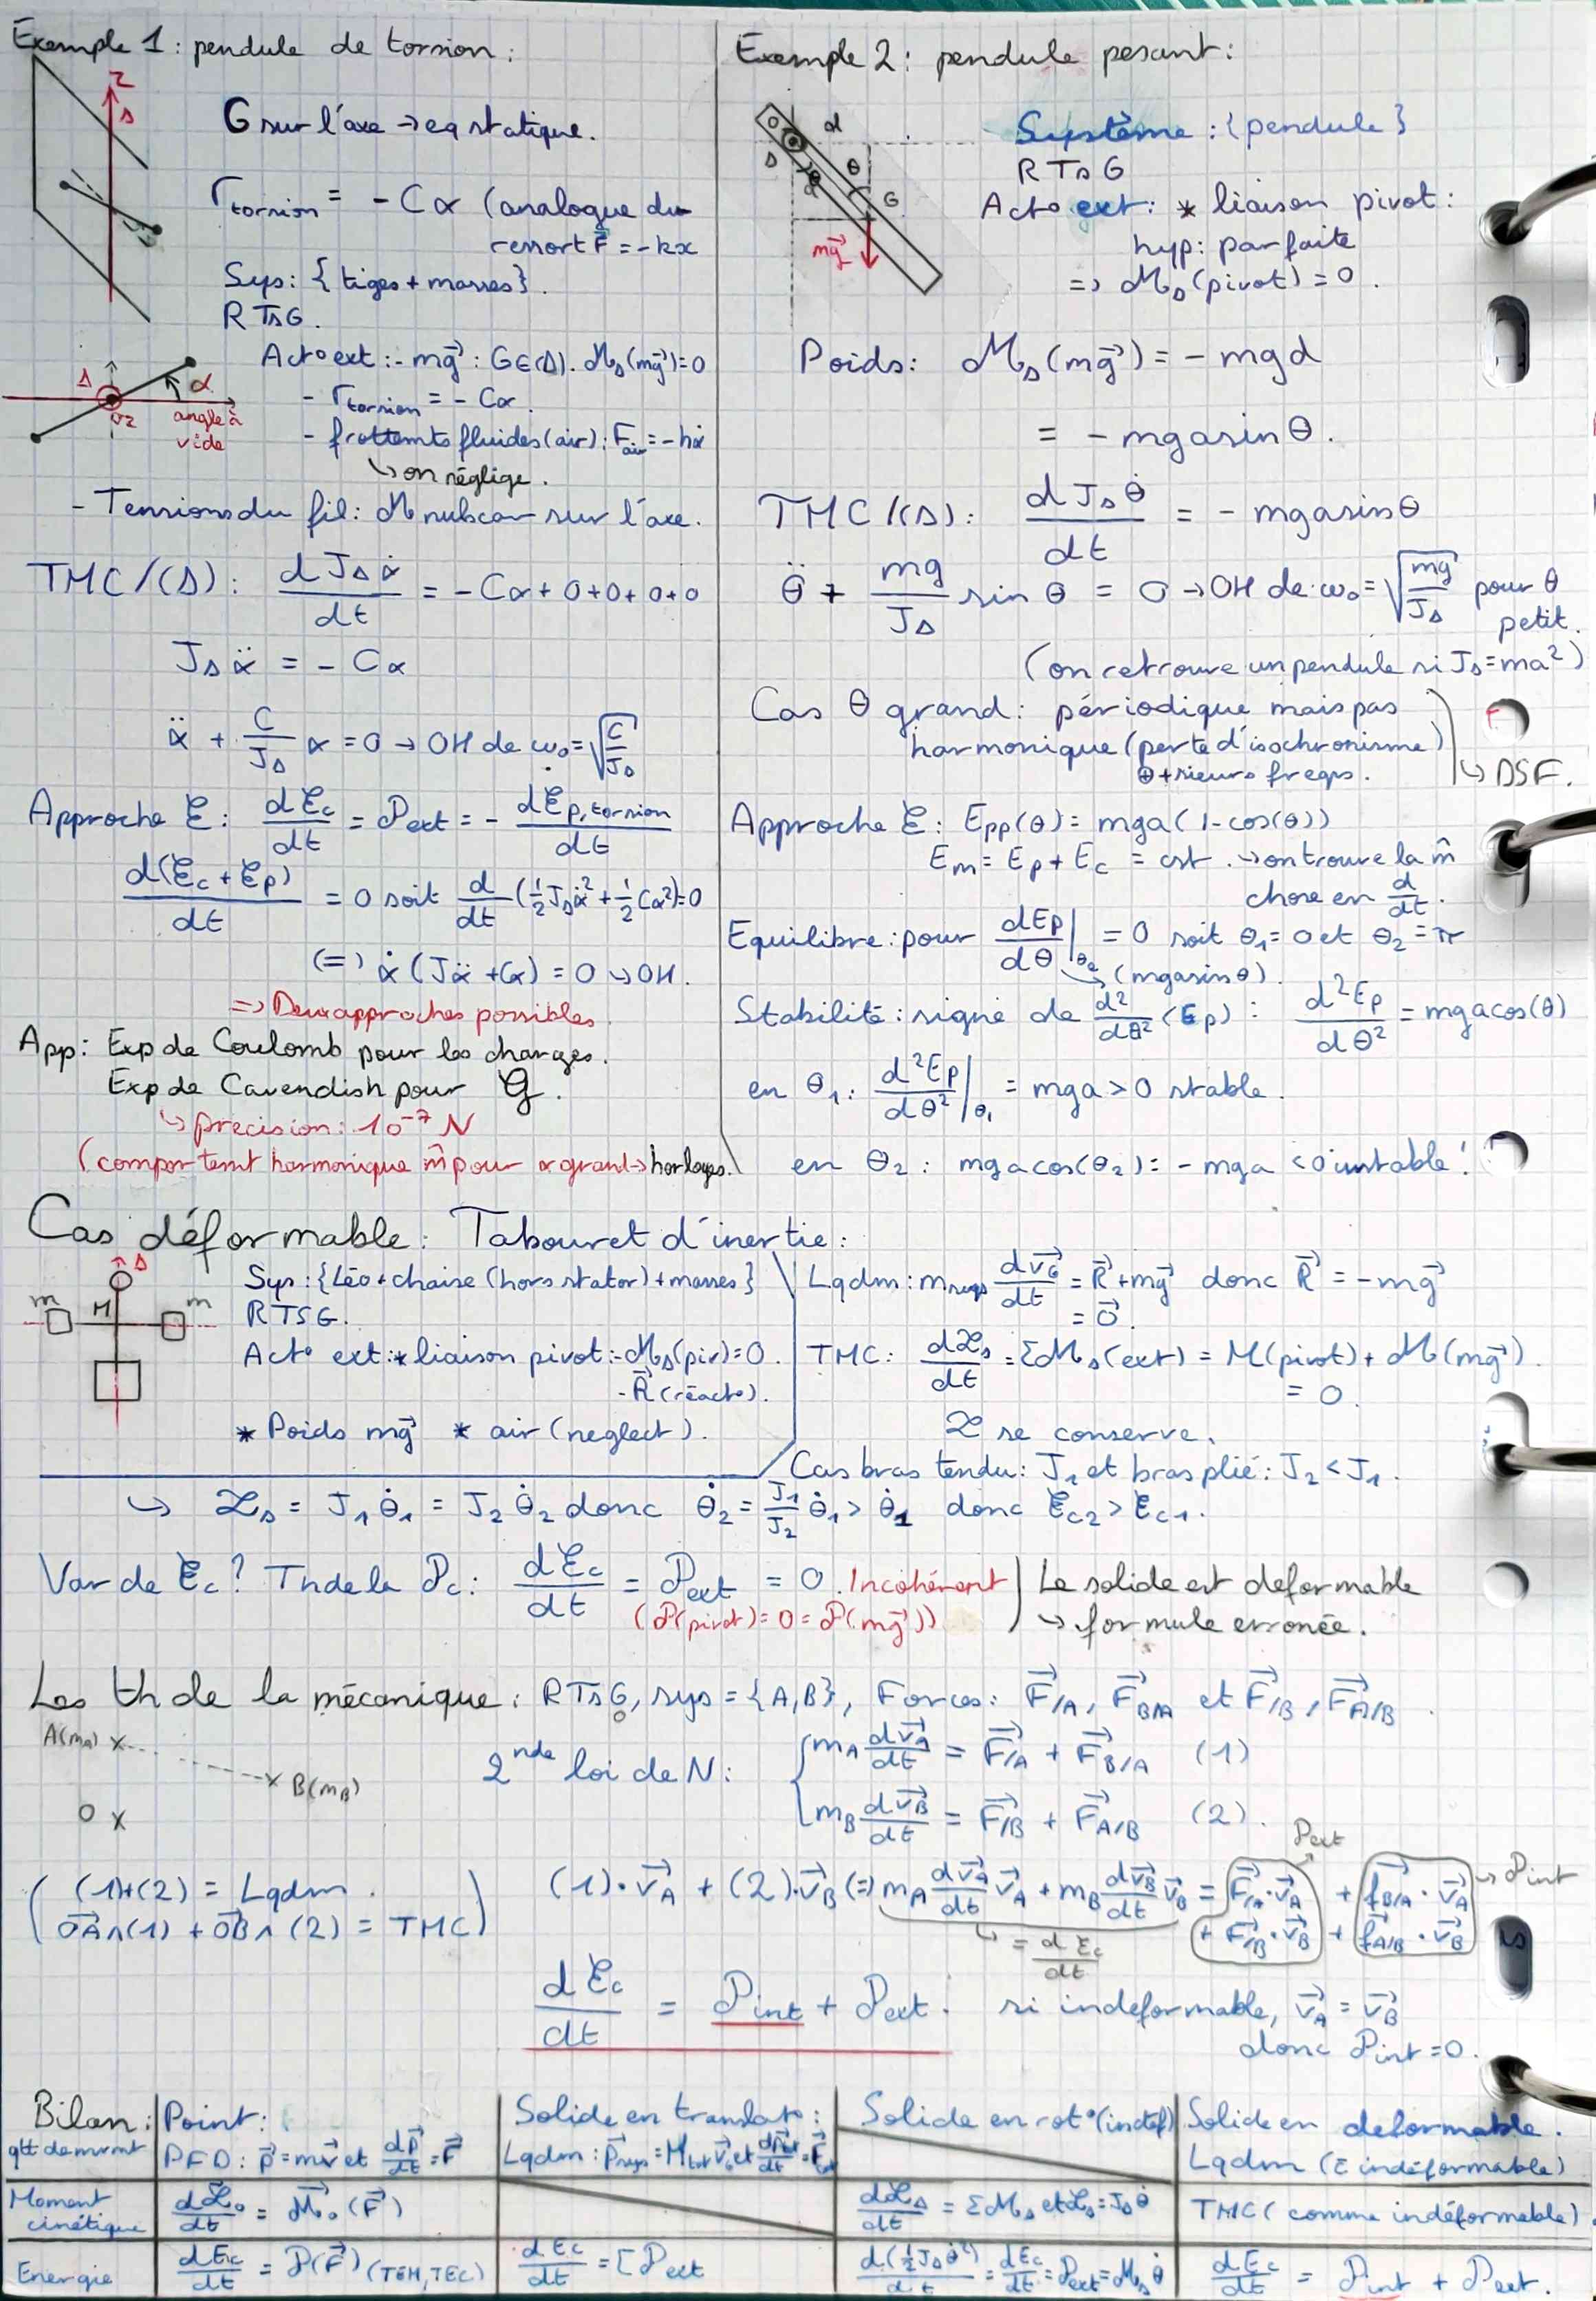 Exemple 1 : pendule de torsion :
z
Δ
G sur l'axe → eq statique.
Γtorsion = - Cα (analogue du
ressort F⃗ = -kx
Sys : {tiges + masses}.
RTSG.
Act° ext : - mg⃗ : G∈(Δ). ℳΔ(mg⃗)=0
- Γtorsion = - Cα.
- frottemts fluides (air) : Fair = -hα̇
↳ on néglige.
Δ
α
angle à
vide
- Tensions du fil : ℳ nuls car sur l'axe.
TMC/(Δ) : dJΔα̇/dt = - Cα + 0+0+0+0
JΔα̈ = - Cα
α̈ + C/JΔ α = 0 → OH de ω₀ = √(C/JΔ)
Approche ℰ : dℰc/dt = 𝒫ext = - dℰp,torsion/dt
d(ℰc + ℰp)/dt = 0 soit d/dt (½JΔα̇² + ½Cα²)=0
(=) α̇ (Jα̈ + Cα) = 0 ↳ OH.
=> Deux approches possibles.
App : Exp de Coulomb pour les charges.
Exp de Cavendish pour 𝒢.
↳ précision : 10⁻⁷ N
(comportemt harmonique m̂ pour α grand → horloges.
Exemple 2 : pendule pesant :
O
d
Δ
a
θ
θ
G
mg⃗
Système : {pendule}
RTSG
Act° ext : * liaison pivot :
hyp : parfaite
=> ℳΔ(pivot) = 0.
Poids : ℳΔ(mg⃗) = - mgd
= - mga sin θ.
TMC/(Δ) : dJΔθ̇/dt = - mga sin θ
θ̈ + mg/JΔ sin θ = 0 → OH de ω₀ = √(mg/JΔ) pour θ
petit.
(on retrouve un pendule si JΔ = ma²)
Cas θ grand : périodique mais pas
harmonique (perte d'isochronisme)
⊕ +sieurs freqs.
↳ DSF.
Approche ℰ : Epp(θ) = mga(1-cos(θ))
Em = Ep + Ec = cst. → on trouve la m̂
chose en d/dt.
Equilibre : pour dEp/dθ|θe = 0 soit θ₁ = 0 et θ₂ = π
(mga sin θ).
Stabilité : signe de d²/dθ² (Ep) : d²Ep/dθ² = mga cos(θ)
en θ₁ : d²Ep/dθ²|θ₁ = mga > 0 stable.
en θ₂ : mga cos(θ₂) = - mga < 0 instable !
Cas déformable : Tabouret d'inertie :
Δ
m
M
m
Sys : {Léo + chaise (hors stator) + masses}
RTSG.
Act° ext : * liaison pivot : - ℳΔ(piv)=0.
- R⃗ (réact°).
* Poids mg⃗ * air (neglect).
Lqdm : msys dvG⃗/dt = R⃗ + mg⃗ donc R⃗ = - mg⃗
= 0⃗.
TMC : dℒΔ/dt = ΣℳΔ(ext) = M(pivot) + ℳ(mg⃗).
= 0.
ℒ se conserve.
Cas bras tendu : J₁ et bras plié : J₂ < J₁.
↳ ℒΔ = J₁θ̇₁ = J₂θ̇₂ donc θ̇₂ = J₁/J₂ θ̇₁ > θ̇₁ donc ℰc2 > ℰc1.
Var de ℰc ? Th de la 𝒫c : dℰc/dt = 𝒫ext = 0. Incohérent
(𝒫(pivot) = 0 = 𝒫(mg⃗))
Le solide est deformable
↳ formule erronée.
Les th de la mécanique : RTSG, sys = {A,B}, Forces : F⃗/A, F⃗B/A et F⃗/B, F⃗A/B.
A(mA) x
x B(mB)
O x
2nde loi de N : { mA dvA⃗/dt = F⃗/A + F⃗B/A (1)
mB dvB⃗/dt = F⃗/B + F⃗A/B (2).
( (1)+(2) = Lqdm.
OA⃗∧(1) + OB⃗∧(2) = TMC )
Pext
(1)·vA⃗ + (2)·vB⃗ (=) mA dvA⃗/dt vA⃗ + mB dvB⃗/dt vB⃗ = F⃗/A·vA⃗ + f⃗B/A·vA⃗ → 𝒫int
+ F⃗/B·vB⃗ + f⃗A/B·vB⃗
↳ = dℰc/dt
dℰc/dt = 𝒫int + 𝒫ext. si indeformable, vA⃗ = vB⃗
donc 𝒫int = 0.
Bilan : Point : Solide en translat° : Solide en rot° (indéf) Solide en deformable.
qtt de mvmt PFD : p⃗ = mv⃗ et dp⃗/dt = F⃗ Lqdm : p⃗sys = Mtot v⃗G et dp⃗tot/dt = F⃗tot Lqdm (Σ indéformable)
Moment cinétique dℒ⃗o/dt = ℳ⃗o(F⃗) dℒΔ/dt = ΣℳΔ et ℒΔ = JΔθ̇ TMC (comme indéformable).
Energie dEc/dt = 𝒫(F⃗) (TEM, TEC) dEc/dt = Σ 𝒫ext d(½JΔθ̇²)/dt = dEc/dt = 𝒫ext = ℳΔθ̇ dEc/dt = 𝒫int + 𝒫ext.